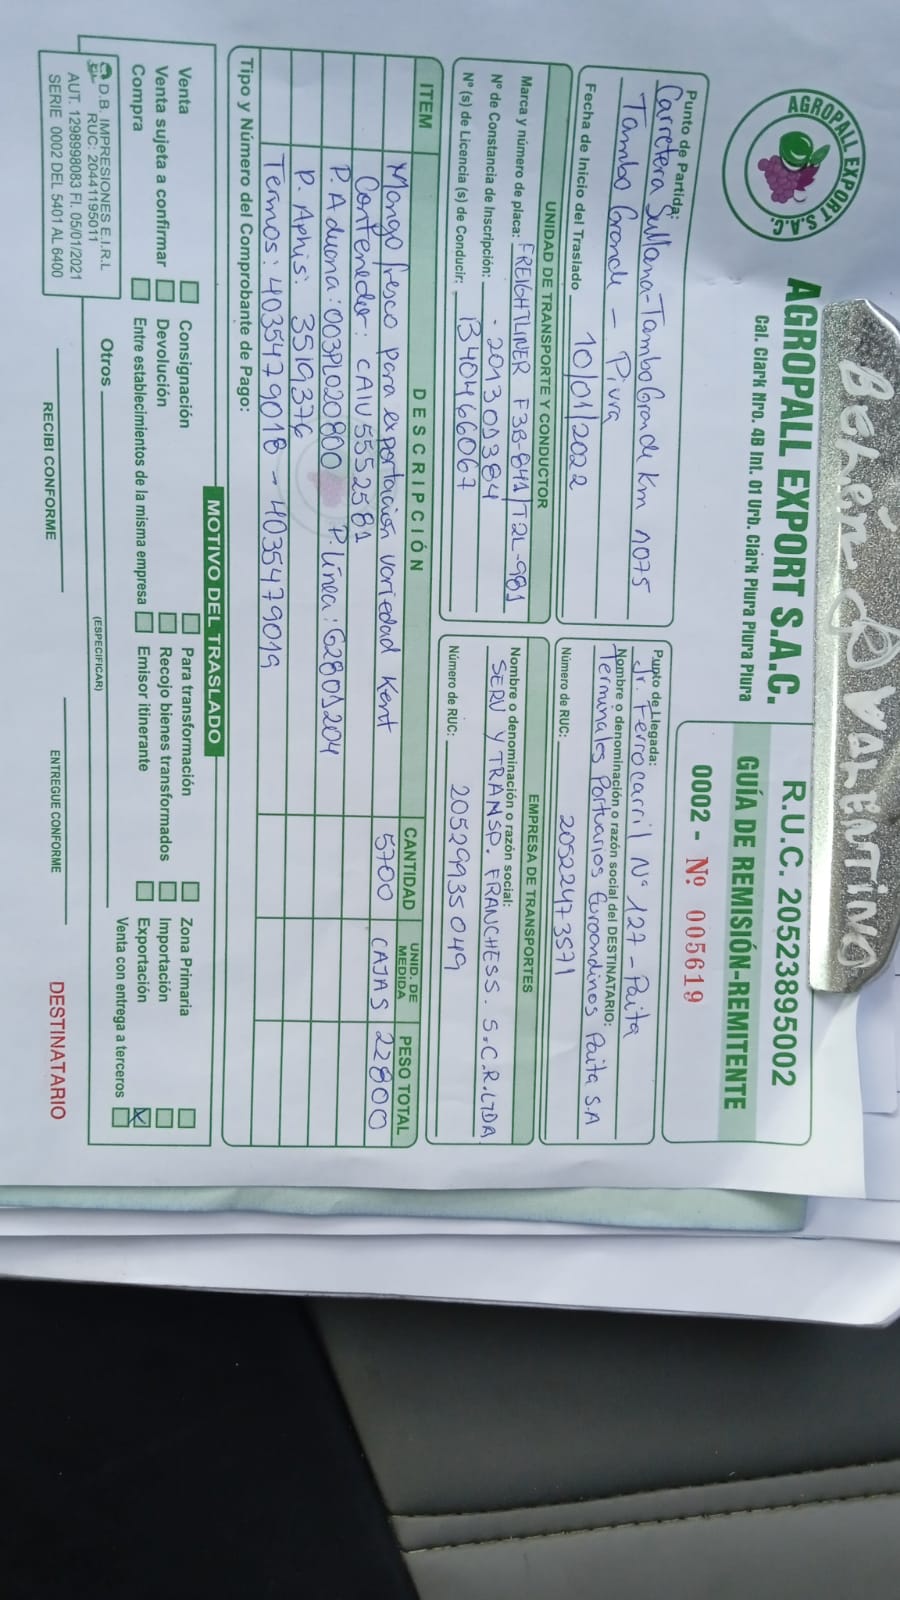 BEHÉR VALENTINO
AGROPALL EXPORT S.A.C.
AGROPALL EXPORT S.A.C.
Cal. Clark Nro. 4B Int. 01 Urb. Clark Piura Piura Piura
R.U.C. 20523895002
GUÍA DE REMISIÓN-REMITENTE
0002 - Nº 005619
Punto de Partida:
Carretera Sullana-TamboGrande Km 1075
Tambo Grande - Piura
Fecha de Inicio del Traslado 10/01/2022
Punto de Llegada:
Jr. Ferrocarril Nº 127 - Paita
Nombre o denominación o razón social del DESTINATARIO:
Terminales Portuarios Euroandinos Paita S.A
Número de RUC: 20522473571
UNIDAD DE TRANSPORTE Y CONDUCTOR
Marca y número de placa: FREIGHTLINER F3B-841/T2L-981
Nº de Constancia de Inscripción: 201309384
Nº (s) de Licencia (s) de Conducir: B40466067
EMPRESA DE TRANSPORTES
Nombre o denominación o razón social:
SERV Y TRANSP. FRANCHESS. S.C.R.LTDA
Número de RUC: 20529935049
ITEM DESCRIPCIÓN CANTIDAD UNID. DE MEDIDA PESO TOTAL
Mango fresco para exportación variedad Kent 5700 CAJAS 22800
Contenedor: CAIU5552581
P. Aduana: 003PL020800 P. Línea: 62809204
P. Aphis: 3519376
Termos: 4035479018 - 4035479019
Tipo y Número del Comprobante de Pago:
MOTIVO DEL TRASLADO
Venta Consignación Para transformación Zona Primaria
Venta sujeta a confirmar Devolución Recojo bienes transformados Importación
Compra Entre establecimientos de la misma empresa Emisor itinerante Exportación X
Otros (ESPECIFICAR) Venta con entrega a terceros
D.B. IMPRESIONES E.I.R.L
RUC: 20441195011
AUT. 1298998083 FI. 05/01/2021
SERIE 0002 DEL 5401 AL 6400
RECIBI CONFORME
ENTREGUE CONFORME
DESTINATARIO